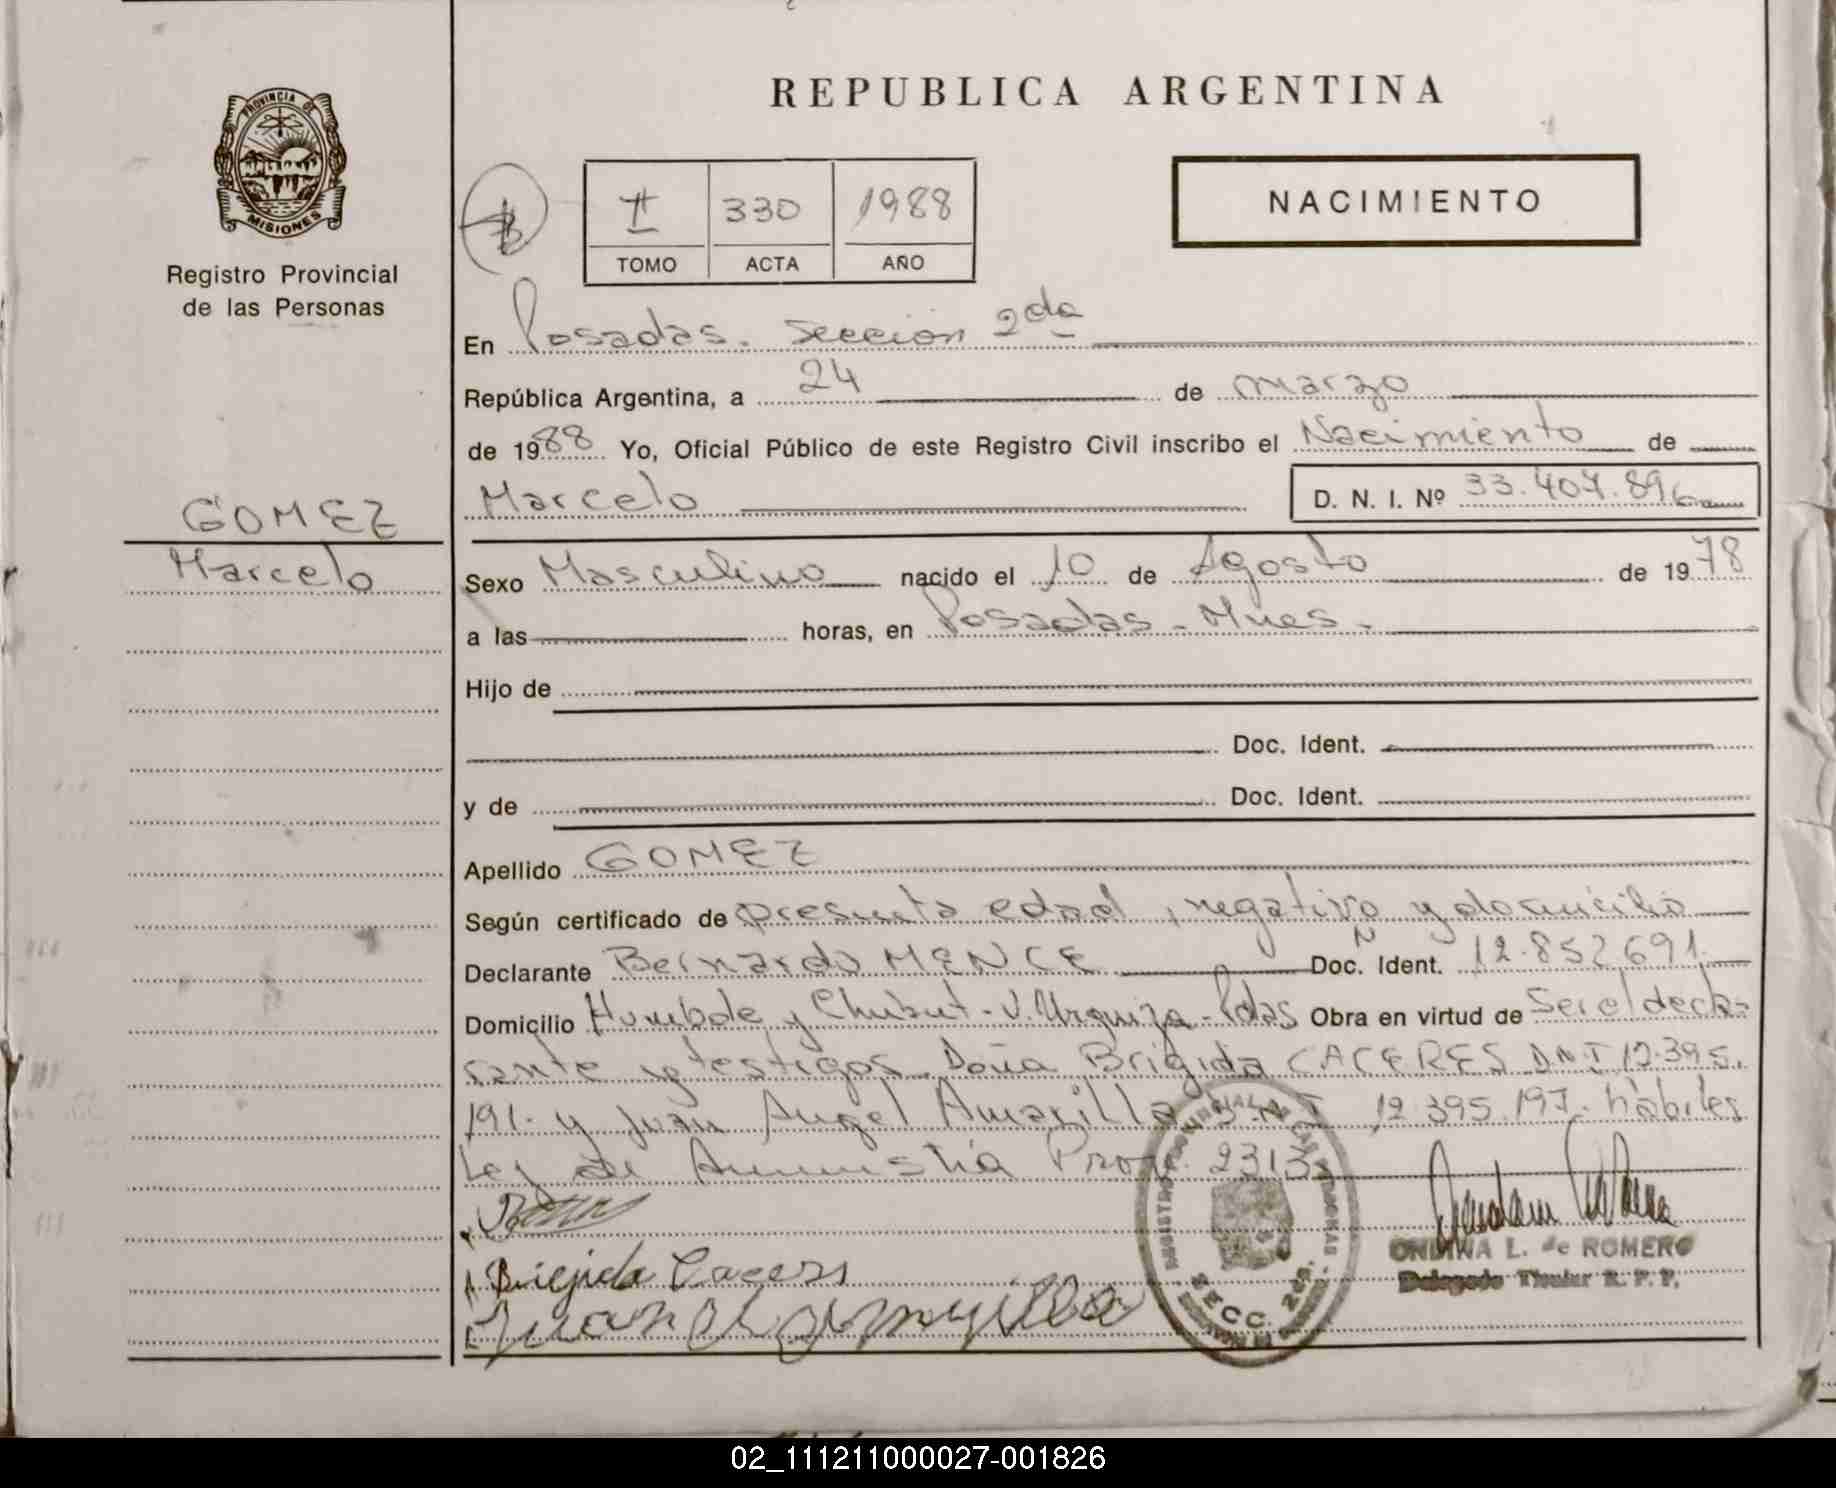 REPUBLICA ARGENTINA
PROVINCIA DE
MISIONES
Registro Provincial
de las Personas
330 1988
TOMO ACTA AÑO
NACIMIENTO
En Posadas. Sección 2da
República Argentina, a 24 de marzo
de 1988 Yo, Oficial Público de este Registro Civil inscribo el Nacimiento de
Marcelo D. N. I. Nº 33.407.896
GOMEZ
Marcelo
Sexo Masculino nacido el 10 de Agosto de 1978
a las horas, en Posadas - Mnes.
Hijo de
Doc. Ident.
y de Doc. Ident.
Apellido GOMEZ
Según certificado de presunta edad, negativo y domicilio
Declarante Bernardo MENCE Doc. Ident. 12.852.691
Domicilio y Chubut - V. Urquiza - Pdas Obra en virtud de Ser el decla-
rante y testigos Doña Brigida CACERES D.N.I 12.395.
191. y Juan Angel Amarilla D.N.I 12.395.197. hábiles
Ley de Amnistía Prov. 2313
Brigida Caceres
Juan A Amarilla
SECC. 2da.
ONDINA L. de ROMERO
Delegado Titular R. P. P.
02_111211000027-001826